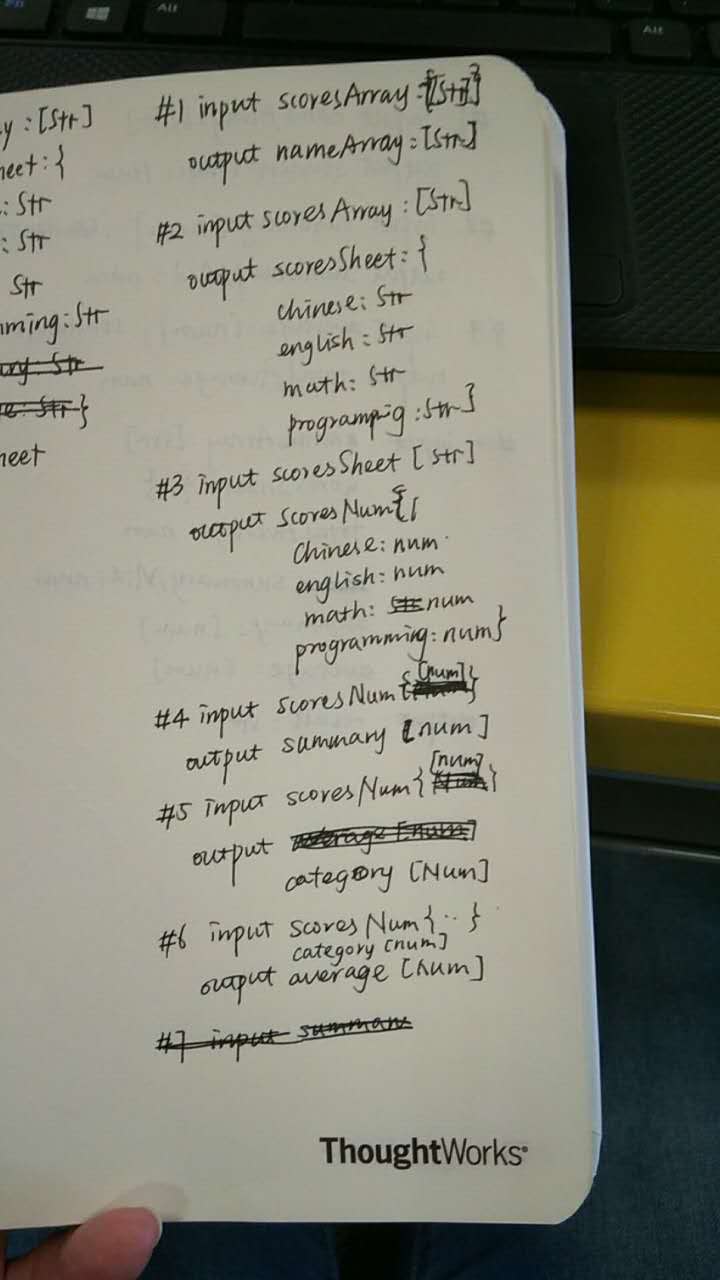 y : [Str]
heet : {
: Str
: Str
Str
mming : Str
ary : Str
e : Str }
heet
#1 input scoresArray : [Str]
output nameArray : [Str]
#2 input scoresArray : [Str]
output scoresSheet : {
chinese : Str
english : Str
math : Str
programmig : Str }
#3 input scoresSheet [ Str ]
output scoresNum {
Chinese : num
english : num
math : Str num
programming : num }
#4 input scoresNum { [num] }
output summary [num]
#5 input scoresNum { [num] }
output average [num]
category [Num]
#6 input scoresNum { ·· }
category [num]
output average [num]
#7 input summary
ThoughtWorks®
Alt
Alt